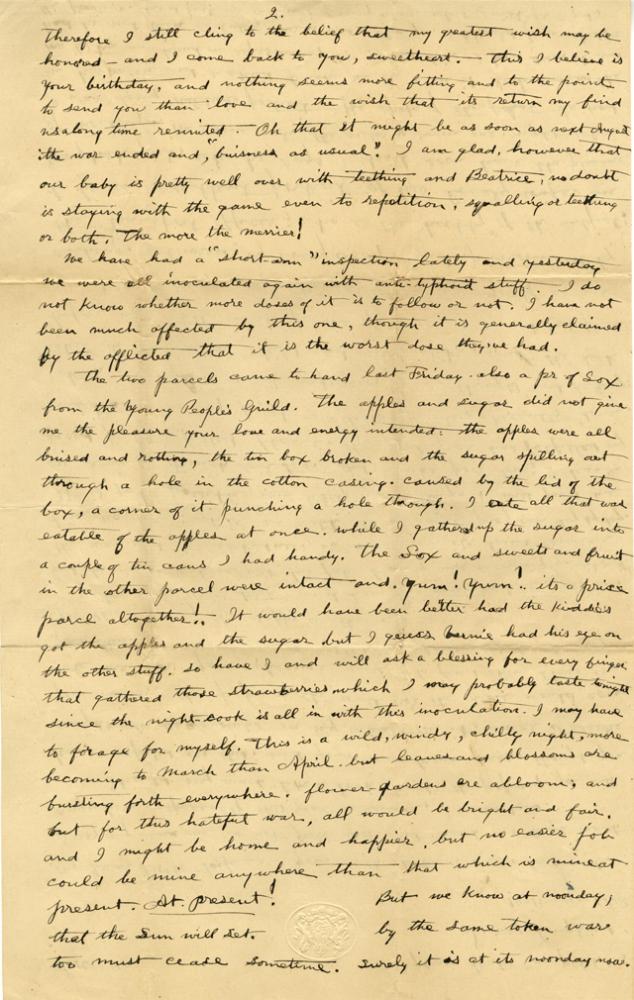 2.
therefore I still cling to the belief that my greatest wish may be
honored – and I come back to you, sweetheart. – This I believe is
your birthday, and nothing seems more fitting and to the point
to send you than love and the wish that its return my find
us along time reunited. Oh that it might be as soon as next August
the war ended and, "buisness as usual". I am glad, however that
our baby is pretty well over with teething and Beatrice, no doubt
is staying with the game even to repetition, squalling or teething
or both. The more the merrier!
We have had a "short-arm" inspection lately and yesterday
we were all inoculated again with anti-typhoid stuff. I do
not know whether more doses of it is to follow or not. I have not
been much affected by this one, though it is generally claimed
by the afflicted that it is the worst dose they've had.
The two parcels came to hand last Friday. also a pr of Sox
from the Young People's Guild. The apples and sugar did not give
me the pleasure your love and energy intended: the apples were all
bruised and rotting, the tin box broken and the sugar spilling out
through a hole in the cotton casing. caused by the lid of the
box, a corner of it punching a hole through. I ate all that was
eatable of the apples at once. while I gathered up the sugar into
a couple of tin cans I had handy. The Sox and sweets and fruit
in the other parcel were intact and. yum! yum!. its a prize
parcl altogether!! It would have been better had the kiddies
got the apples and the sugar but I guess Bernie had his eye on
the other stuff. so have I and will ask a blessing for every finger
that gathered those strawberries which I may probably taste tonight
since the night-cook is all in with this inoculation. I may have
to forage for myself. This is a wild, windy, chilly night, more
becoming to March than April. but leaves and blossoms are
bursting forth everywhere. flower-gardens are abloom, and
but for this hateful war, all would be bright and fair.
and I might be home and happier, but no easier job
could be mine anywhere than that which is mine at
present. At present! But we know at noonday,
that the Sun will set. by the same token war
too must cease sometime. Surely it is at its noonday now.